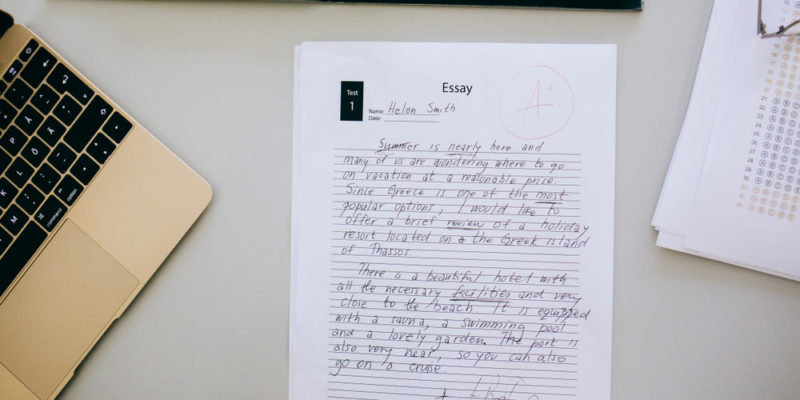 Test
1
Essay
Name: Helen Smith
Date:
A+
Summer is nearly here and
many of us are wondering where to go
on vacation at a reasonable price
Since Greece is one of the most
popular options, I would like to
offer a brief review of a holiday
resort located on the Greek island
of Thassos.
There is a beautiful hotel with
all the necessary facilities and very
close to the beach. It is equipped
with a sauna, a swimming pool
and a lovely garden. The port is
also very near, so you can also
go on a cruise.